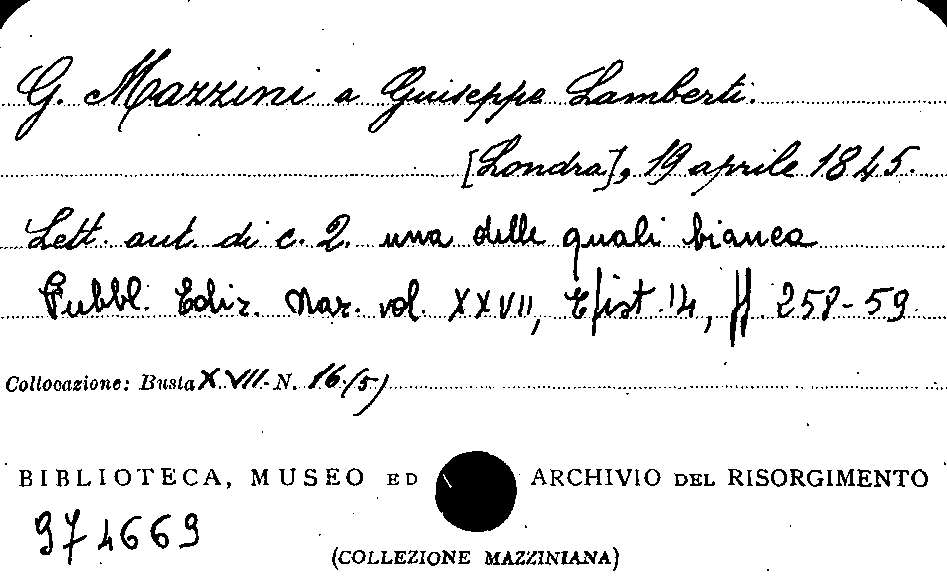 G. Mazzini a Guiseppe Lamberti.
[Londra], 19 aprile 1845.
Lett. aut. di c. 2. una delle quali bianca
Pubbl. Ediz. Naz. vol. XXVII, Epist. 14, pp. 258-59
Collocazione: Busta XVII - N. 16/5)
BIBLIOTECA, MUSEO ED ARCHIVIO DEL RISORGIMENTO
974669
(COLLEZIONE MAZZINIANA)